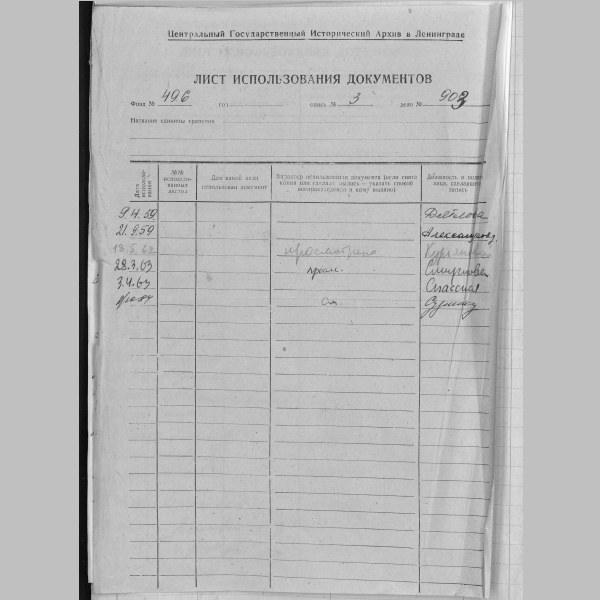 Центральный Государственный Исторический Архив в Ленинграде
ЛИСТ ИСПОЛЬЗОВАНИЯ ДОКУМЕНТОВ
Фонд № 496 год опись № 3 дело № 903
Название единицы хранения
Дата использования
№№ использованных листов
Для какой цели использован документ
Характер использования документа (если снята копия или сделана выпись — указать способ воспроизведения и кому выдано)
Должность и лица, сделавшего запись
9.4.59
21.9.59 Александров
просмотрено
28.3.63 просм. Смирнова
3.4.63 Спасская
См.